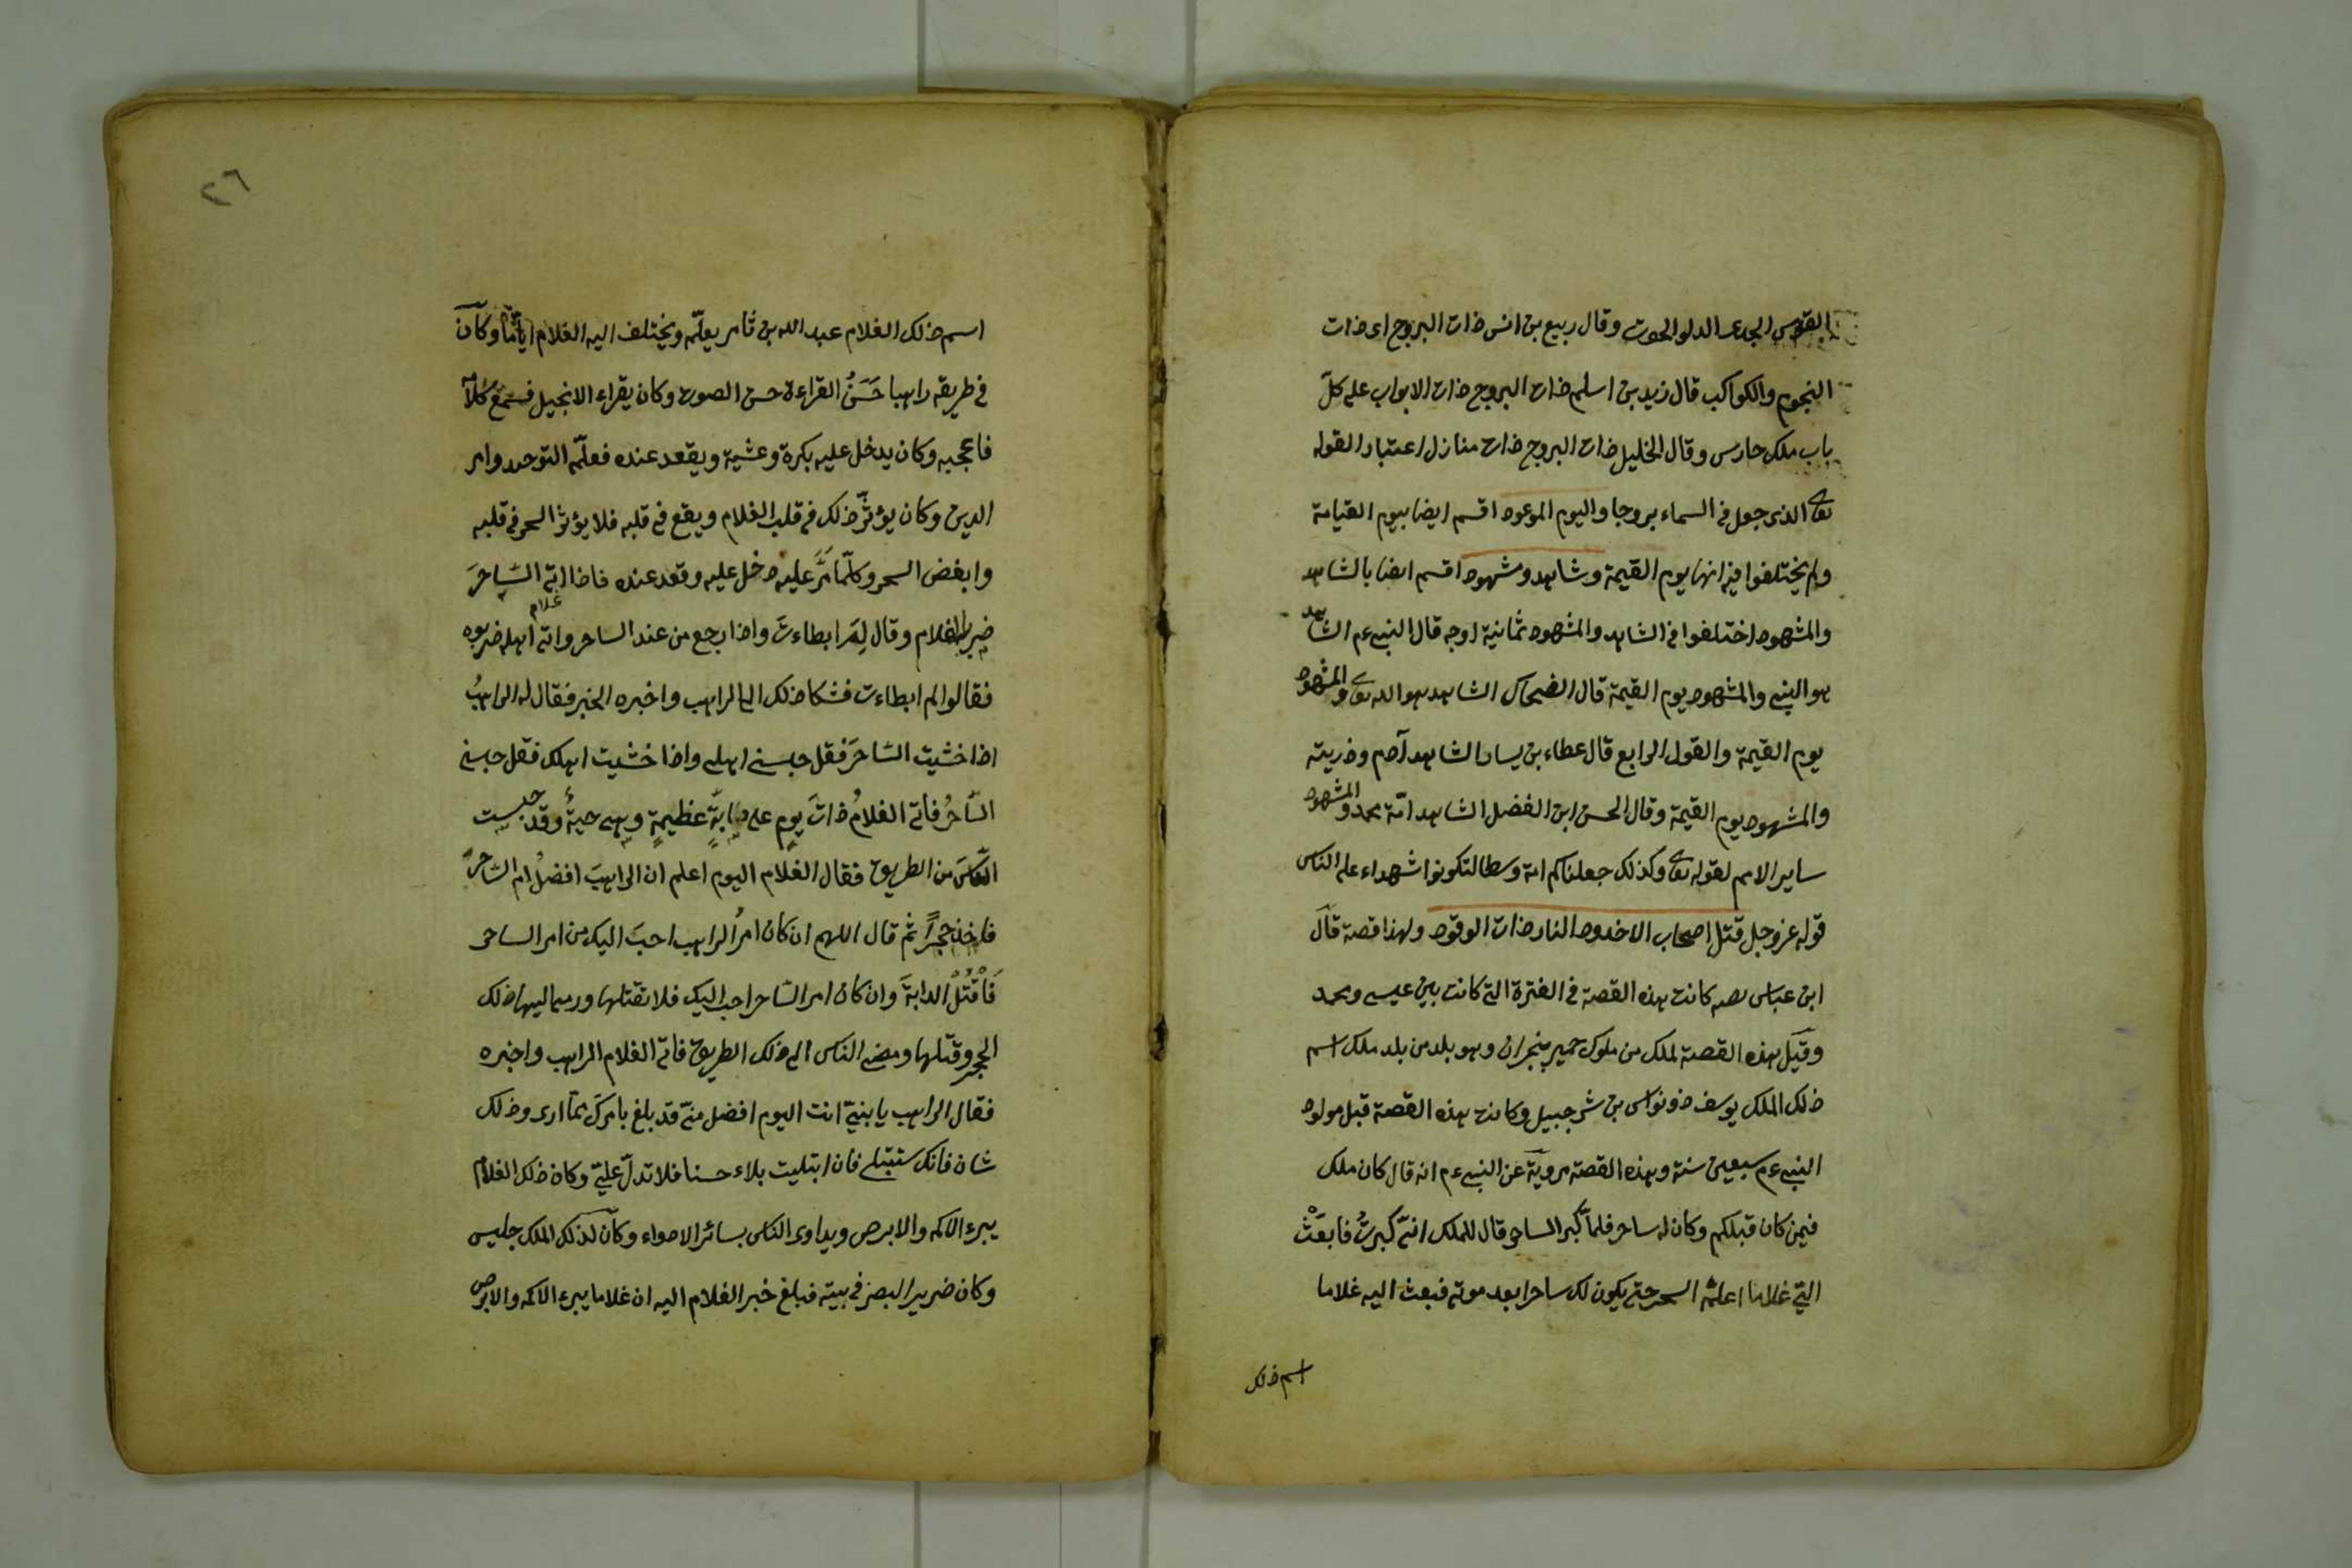 القوس الجدى الدلو الحوت وقال ربيع بن انس ذات البروج اى ذات
النجوم والكواكب قال زيد بن اسلم ذات البروج ذات الابواب على كلّ
باب ملك حارس وقال الخليل ذات البروج ذات منازل اعتبار القوله
تعالى الذى جعل فى السماء بروجا واليوم الموعود اقسم ايضا بيوم القيامة
ولم يختلفوا فيه انها يوم القيمة وشاهد ومشهود اقسم ايضا بالشاهد
والمشهود اختلفوا فى الشاهد والمشهود ثمانية اوجه قال النبى عم الشاهد
هو النبى والمشهود يوم القيمة قال الضحاك الشاهد هو الله تعالى والمشهود
يوم القيمة والقول الرابع قال عطاء بن يسار الشاهد آدم وذريته
والمشهود يوم القيمة وقال الحسن ابن الفضل الشاهد امّة محمد والمشهود
ساير الامم لقوله تعالى وكذلك جعلناكم امة وسطا لتكونوا شهداء على الناس
قوله عز وجل قتل اصحاب الاخدود النار ذات الوقود ولهذا قصة قال
ابن عباس رضه كانت هذه القصة فى الفترة التى كانت بين عيسى ومحمد
وقيل هذه القصة لملك من ملوك حمير بنجران وهو بلد من بلد ملك اسم
ذلك الملك يوسف ذو نواس بن شرجبيل وكانت هذه القصة قبل مولود
النبى عم سبعين سنة وهذه القصة مرويّة عن النبى عم انه قال كان ملك
فيمن كان قبلكم وكان له ساحر فلمّا كبر الساحر قال للملك انىّ كبرتُ فابعَثْ
الىّ غلاما اعلمّه السحر حتى يكون لك ساحرا بعد موتى فبعث اليه غلاما
اسم ذلك
٢٦
اسم ذلك الغلام عبد الله بن ثامر يعلّمه ويختلف اليه الغلام ايّامًا وكان
فى طريقه راهبا حَسَنُ القراءة حسن الصوت وكان يقراء الانجيل فسمع كلا
فاعجبه وكان يدخل عليه بكرة وعشية ويقعد عنده فعلّمه التوحيد وامر
الدين وكان يؤثرّ ذلك فى قلب الغلام ويقع فى قلبه فلا يؤثر السحر فى قلبه
وابغض السحر وكلّما مَرَّ عليه دخل عليه وقعد عنده فاذا اتى السّاحرَ
ضربه الغلام وقال لِمَ ابطاءتَ واذا رجع من عند الساحر واتى غلام اهله ضربوه
فقالوا لم ابطاءت فشكا ذلك الى الراهب واخبره الخبر فقال له الراهبُ
اذا خشيت السّاحرَ فقل حبسنى اهلى واذا خشيت اهلك فقل حبسنى
السّاحرُ فاتى الغلامُ ذاتَ يومٍ على دابّةٍ عظيمةٍ وهى حيةٌ وقد حبست
النّاسَ من الطريق فقال الغلام اليوم اعلم ان الراهبَ افضلُ ام السّاحرُ
فاخذ حجرًا ثم قال اللهم ان كان امرُ الراهب احبَّ اليك من امر الساحر
فَاْقْتُلْ الدابةَ وان كان امر السّاحر احب اليك فلا تقتلها ورمى اليها ذلك
الحجر وقتلها ومضى الناس الى ذلك الطريق فاتى الغلام الراهب واخبره
فقال الراهب يا بنىّ انت اليوم افضل منىّ قد بلغ بامركَ ممّا ارى وذلك
شان فانك ستبتلى فان ابتليت بلاء حسنا فلا تدلّ علىّ وكان ذلك الغلام
يبرء الاكمه والابرص ويداوى الناس بسائر الادواء وكان لذلك الملك جليس
وكان ضرير البصر فى بيته فبلغ خبر الغلام اليه ان غلاما يبرء الاكمه والابرص